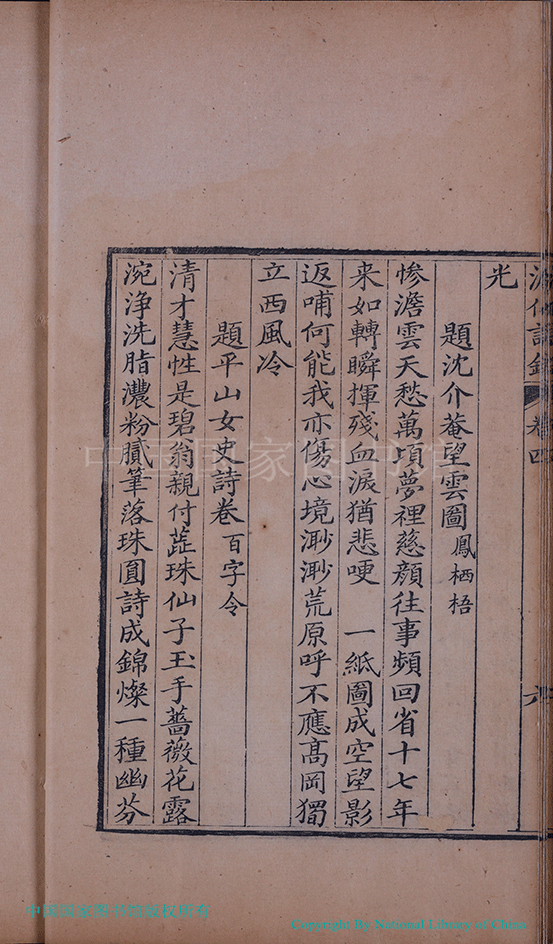 卷四
六
光
題沈介菴望雲圖 鳳栖梧
慘澹雲天愁萬頃夢裡慈顔往事頻回省十七年
来如轉瞬揮殘血淚猶悲哽　一紙圖成空望影
返哺何能我亦傷心境渺渺荒原呼不應高岡獨
立西風冷
題平山女史詩卷 百字令
清才慧性是碧翁親付蕋珠仙子玉手薔薇花露
涴净洗脂濃粉膩筆落珠圓詩成錦燦一種幽芬
中国国家图书馆
中国国家图书馆版权所有
Copyright By National Library of China